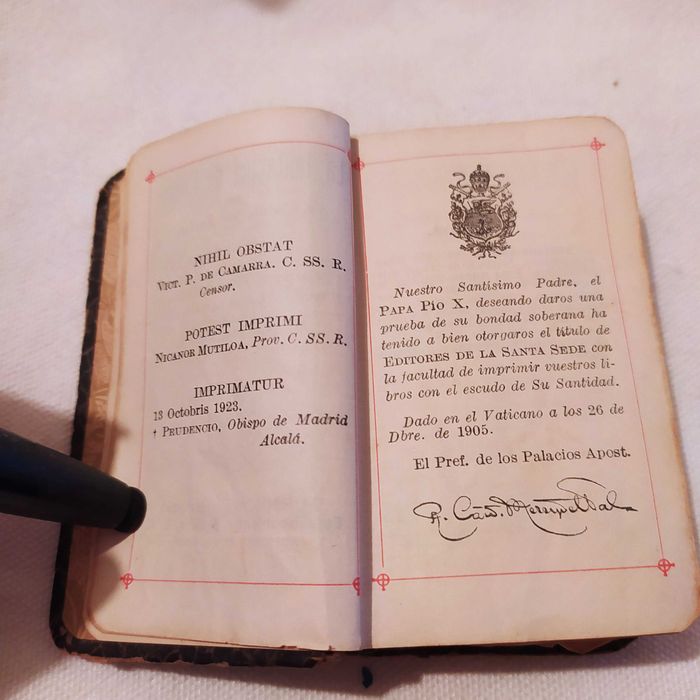 NIHIL OBSTAT
Vict. P. de Camarra. C. SS. R.
Censor.
POTEST IMPRIMI
Nicanor Mutiloa, Prov. C. SS. R.
IMPRIMATUR
13 Octobris 1923.
† Prudencio, Obispo de Madrid
Alcalá.
Nuestro Santísimo Padre, el
Papa Pío X, deseando daros una
prueba de su bondad soberana ha
tenido a bien otorgaros el título de
Editores de la Santa Sede con
la facultad de imprimir vuestros li-
bros con el escudo de Su Santidad.
Dado en el Vaticano a los 26 de
Dbre. de 1905.
El Pref. de los Palacios Apost.
R. Card. Merry del Val